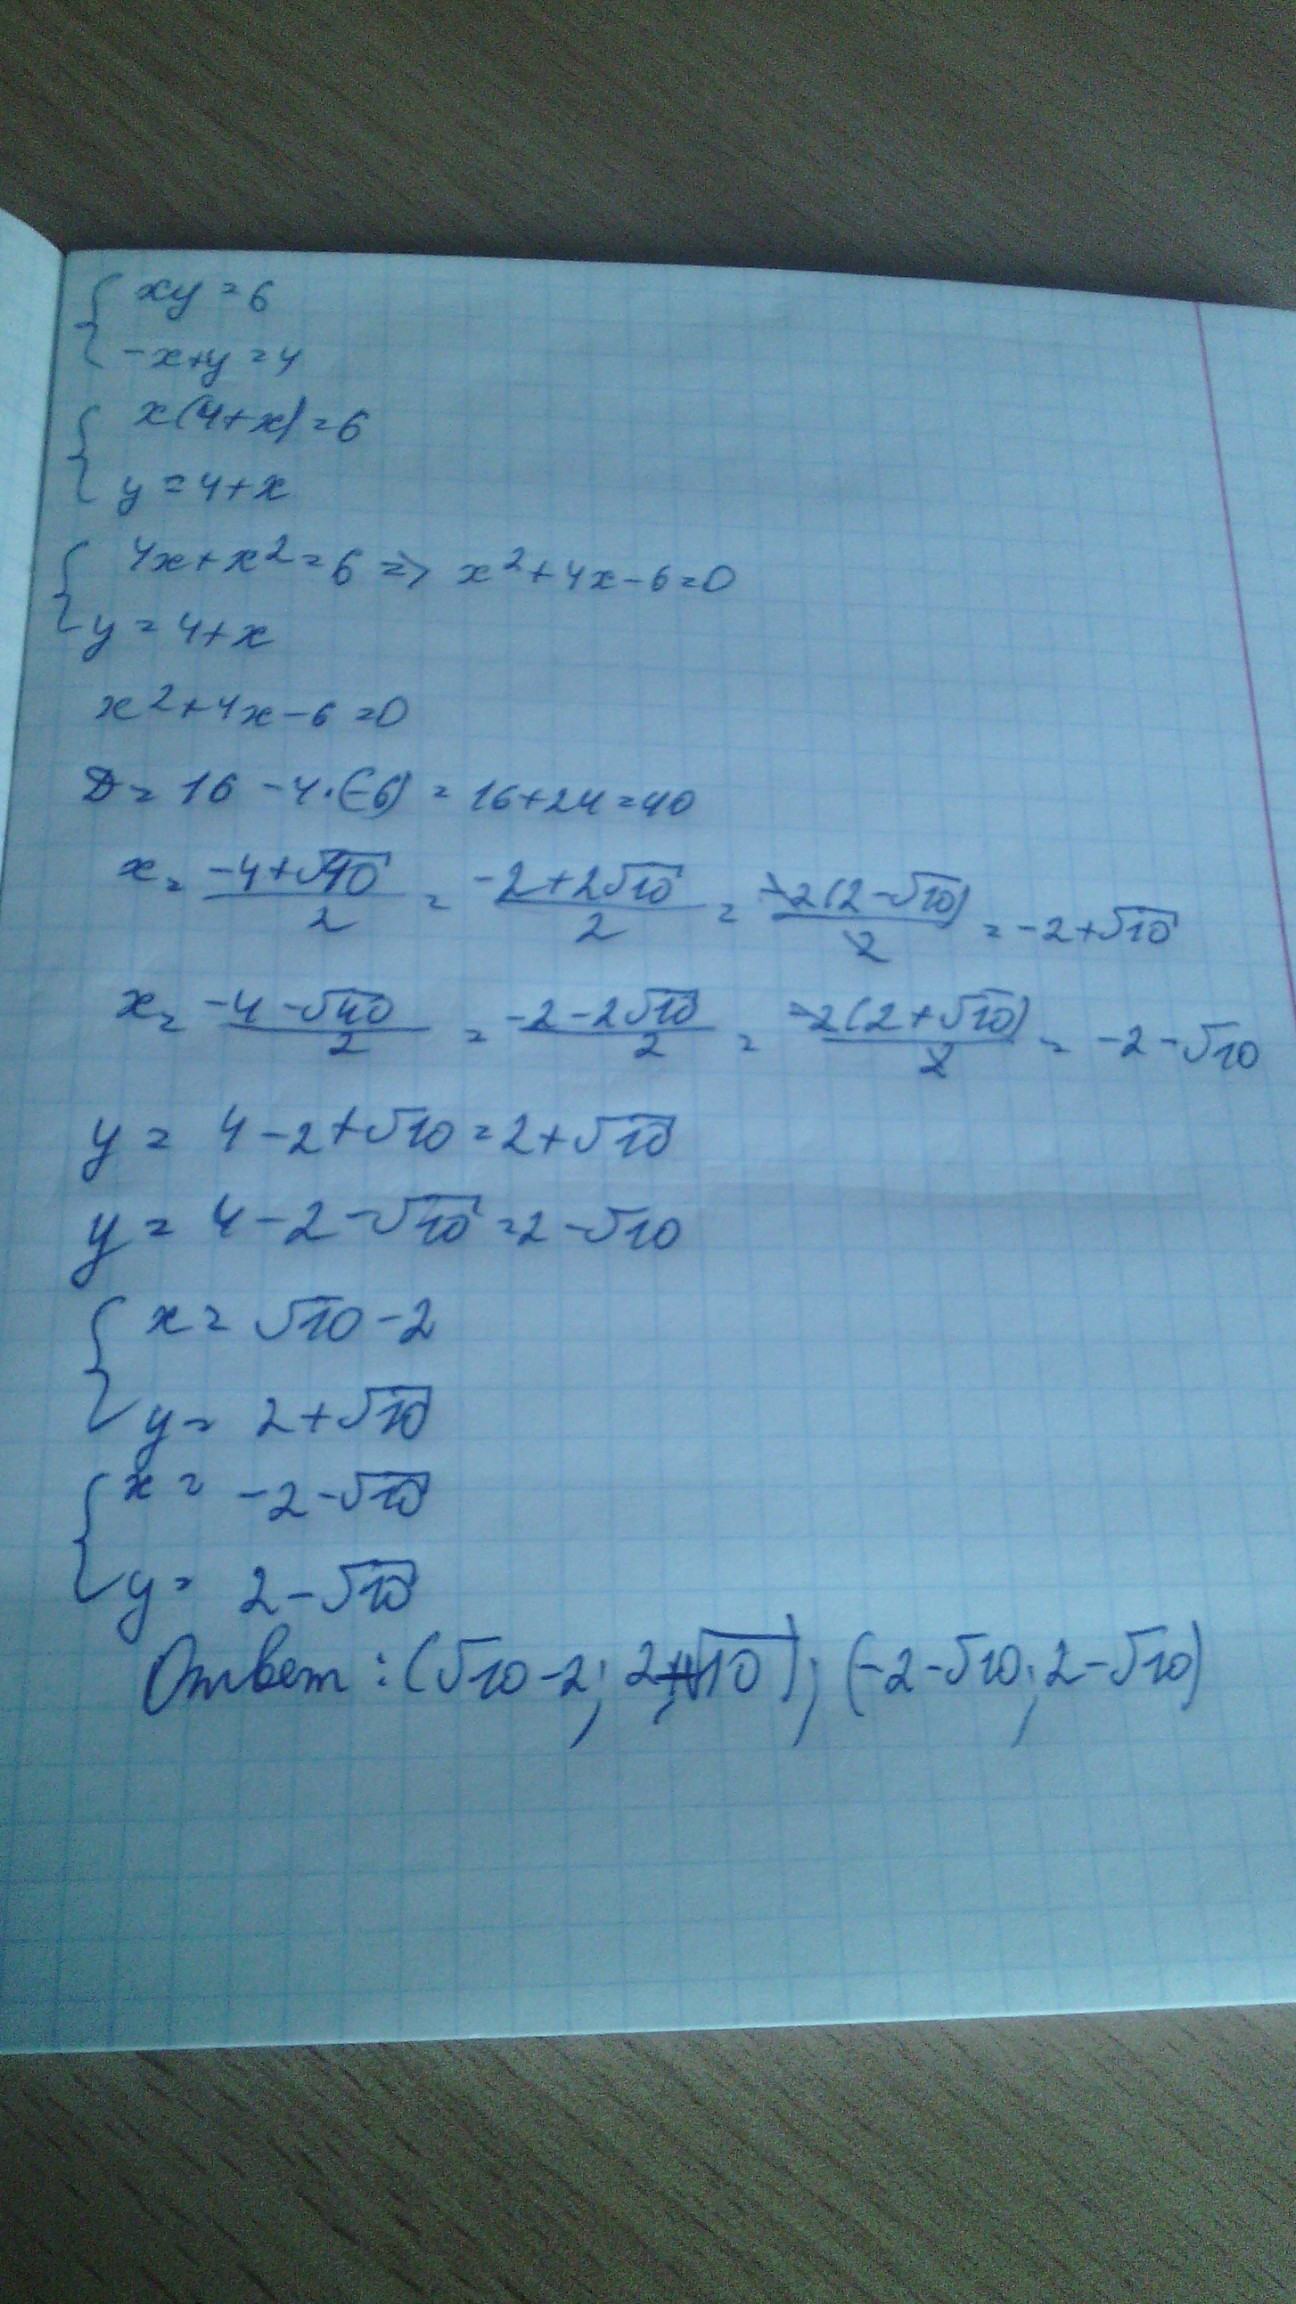 { xy = 6
-x+y = 4
{ x(4+x) = 6
y = 4+x
{ 4x+x² = 6 => x²+4x-6=0
y = 4+x
x²+4x-6=0
D = 16 - 4·(-6) = 16+24=40
x = (-4+√40)/2 = (-2+2√10)/2 = -2(2-√10)/2 = -2+√10
x = (-4-√40)/2 = (-2-2√10)/2 = -2(2+√10)/2 = -2-√10
y = 4-2+√10 = 2+√10
y = 4-2-√10 = 2-√10
{ x = √10-2
y = 2+√10
{ x = -2-√10
y = 2-√10
Ответ: (√10-2; 2+√10); (-2-√10; 2-√10)